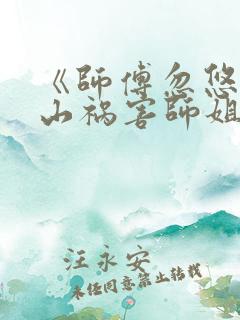 《师傅忽悠
山祸害师姐
汪永安
未经同意禁止转载